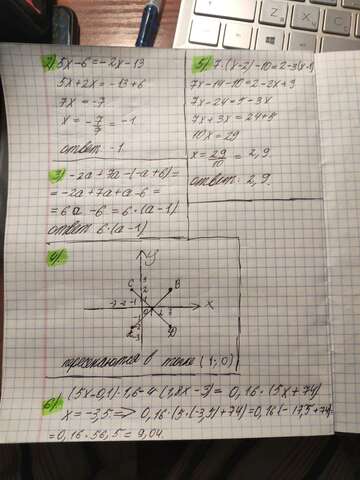 2) 5x-6=-2x-13
5x+2x=-13+6
7x=-7
x=-7/7=-1
ответ -1
3) -2a+7a-(-a+6)=
=-2a+7a+a-6=
=6a-6=6·(a-1)
ответ 6·(a-1)
5) 7·(x-2)-10=2-3(x-1)
7x-14-10=2-
7x-24=5-3x
7x+3x=24+5
10x=29
x=29/10=2,9
ответ 2,9.
4)
y
C
B
x
D
пересекаются в точке (1;0)
6) (5x-0,1)·1,6-4·(1,8x-3)=0,16·(5x+74)
x=-3,5=>0,16·(5·(-3,5)+74)=0,16(-17,5+74)
=0,16·56,5=9,04.